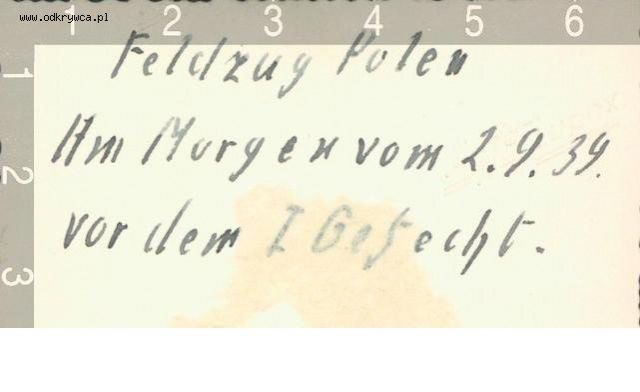 www.odkrywca.pl
1 2 3 4 5 6
1
2
3
Feldzug Polen
Am Morgen vom 2.9.39.
vor dem I Gefecht.